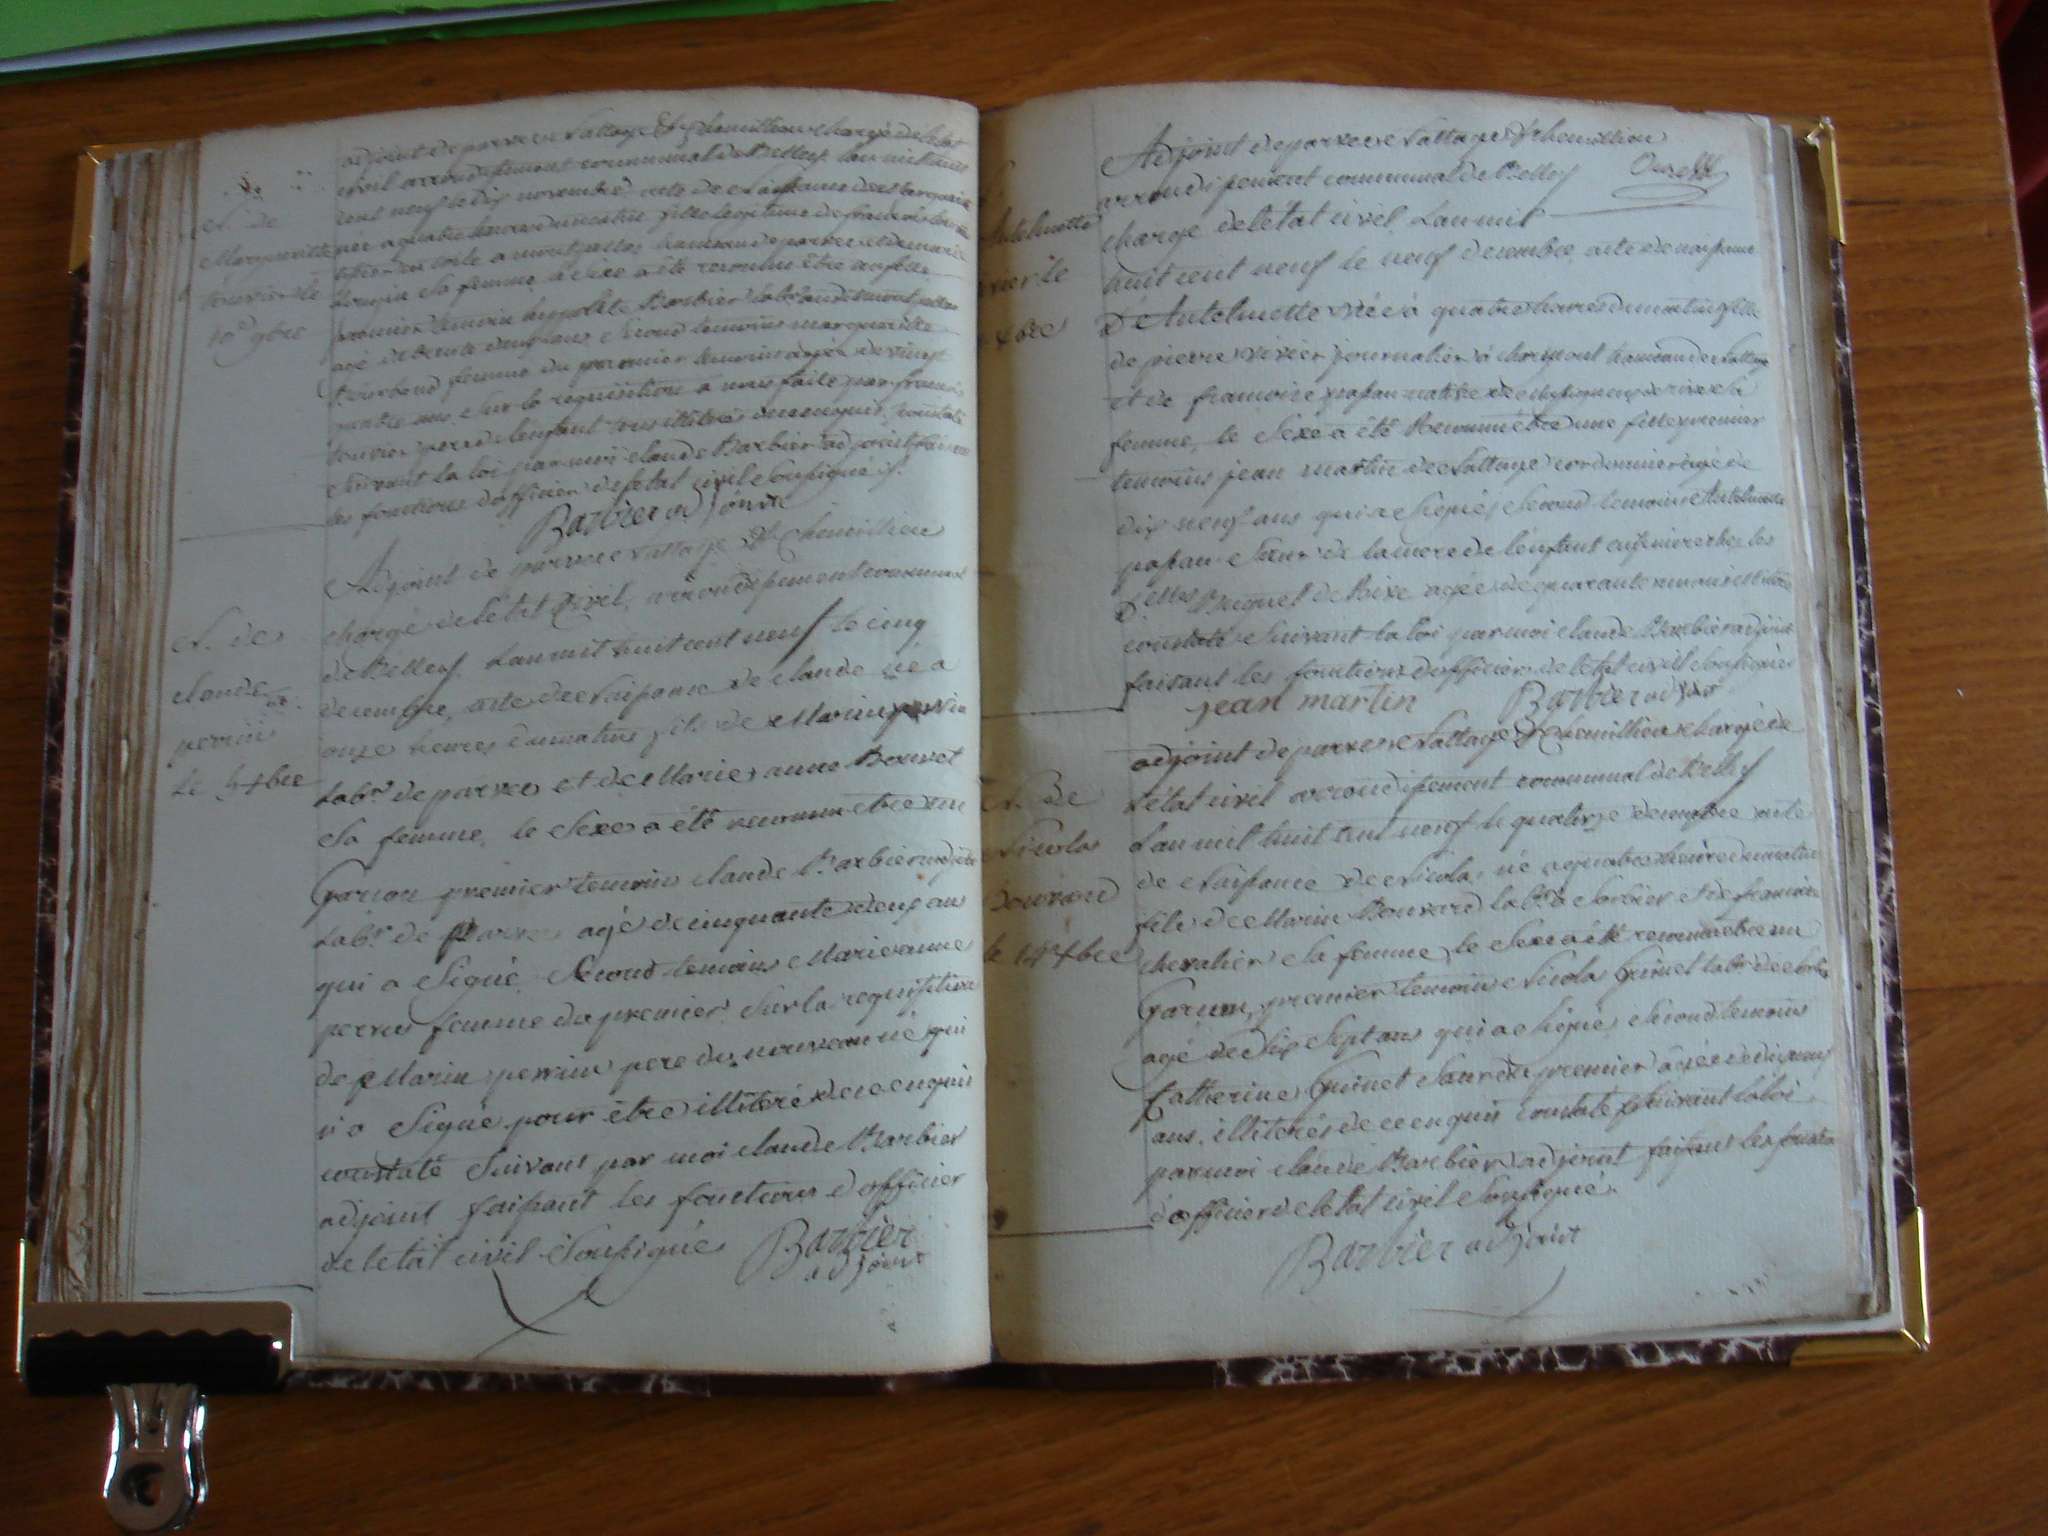 N. de
Marguerite
le
10 9bre
adjoint de parves Nattage & Chemillieu chargé de letat
civil arrondissement communal de Belley Lan mil huit
cent neuf le dix novembre acte de Naissance de Marguerite
née a quatre heures du matin fille legitime de françois
sa femme, le sexe a été reconnu être une fille
premier temoin hyppolite Barbier
agé de trente deux ans, second temoin marguerite
femme du premier temoin agée de vingt
quatre ans. Sur la requisition a nous faite par françois
pere de lenfant tous illitérés de ce enquis, constaté
Suivant la loi par moi claude Barbier adjoint faisant
les fonctions dofficier de letat civil Soussigné
Barbier adjoint
N. de
claude
perrin
le 5 xbre
Adjoint de parves Nattage & Chemillieu
chargé de letat Civil, arrondissement communal
de Belley Lan mil huit cent neuf le cinq
decembre, acte de Naissance de claude né a
onze heures du matin, fils de Marin perrin
Labr. de parves et de Marie anne Bouvet
Sa femme, le Sexe a été reconnu etre un
Garcon premier temoin claude Barbier
Labr. de Parves agé de cinquante deux ans
qui a Signé, Second temoin Marieanne
femme du premier Sur la requisition
de Marin perrin pere du nouveau né qui
n'a Signé pour être illitéré de ce enquis
constaté Suivant par moi claude Barbier
adjoint faisant les fonctions dofficier
de letat civil Soussigné Barbier
adjoint
Antelmette
vivier le
9 xbre
Adjoint de parves Nattage & Chemillieu
arrondissement communal de Belley
chargé de létat civil, Lan mil
huit cent neuf le neuf decembre, acte de naissance
D'Antelmette née à quatre heures du matin, fille
de pierre vivier journalier à charmont hameau de Nattage
et de francoise native de Sa
femme, le Sexe a été Reconnu être une fille premier
temoins jean martin de Nattage cordonnier agé de
dix neuf ans qui a Signé, Second temoin Antelmette
Sœur de la mere de lenfant cuisiniere chez les
Delles agée de quarante
constaté Suivant la loi par moi claude Barbier adjoint
faisant les fonctions dofficier de letat civil Soussigné
jean martin Barbier adjoint
N. de
Nicolas
Bouvard
le 14 xbre
adjoint de parves Nattage & Chemillieu chargé de
l'état civil arrondissement communal de Belley
Lan mil huit cent neuf le quatorze decembre acte
de Naissance de Nicolas né a quatre heures du matin
fils de Marin Bouvard labr. a Sorbier et de francoise
chevalier Sa femme, le Sexe a été reconnu etre un
Garcon, premier temoin Nicolas Guinet labr. de Sorbier
agé de dix Sept ans qui a Signé, Second temoin
Catherine Guinet Sœur du premier agée de dix neuf
ans, illiterés de ce enquis constaté Suivant la loi
par moi claude Barbier adjoint faisant les fonctions
d'officier de letat civil Soussigné.
Barbier adjoint